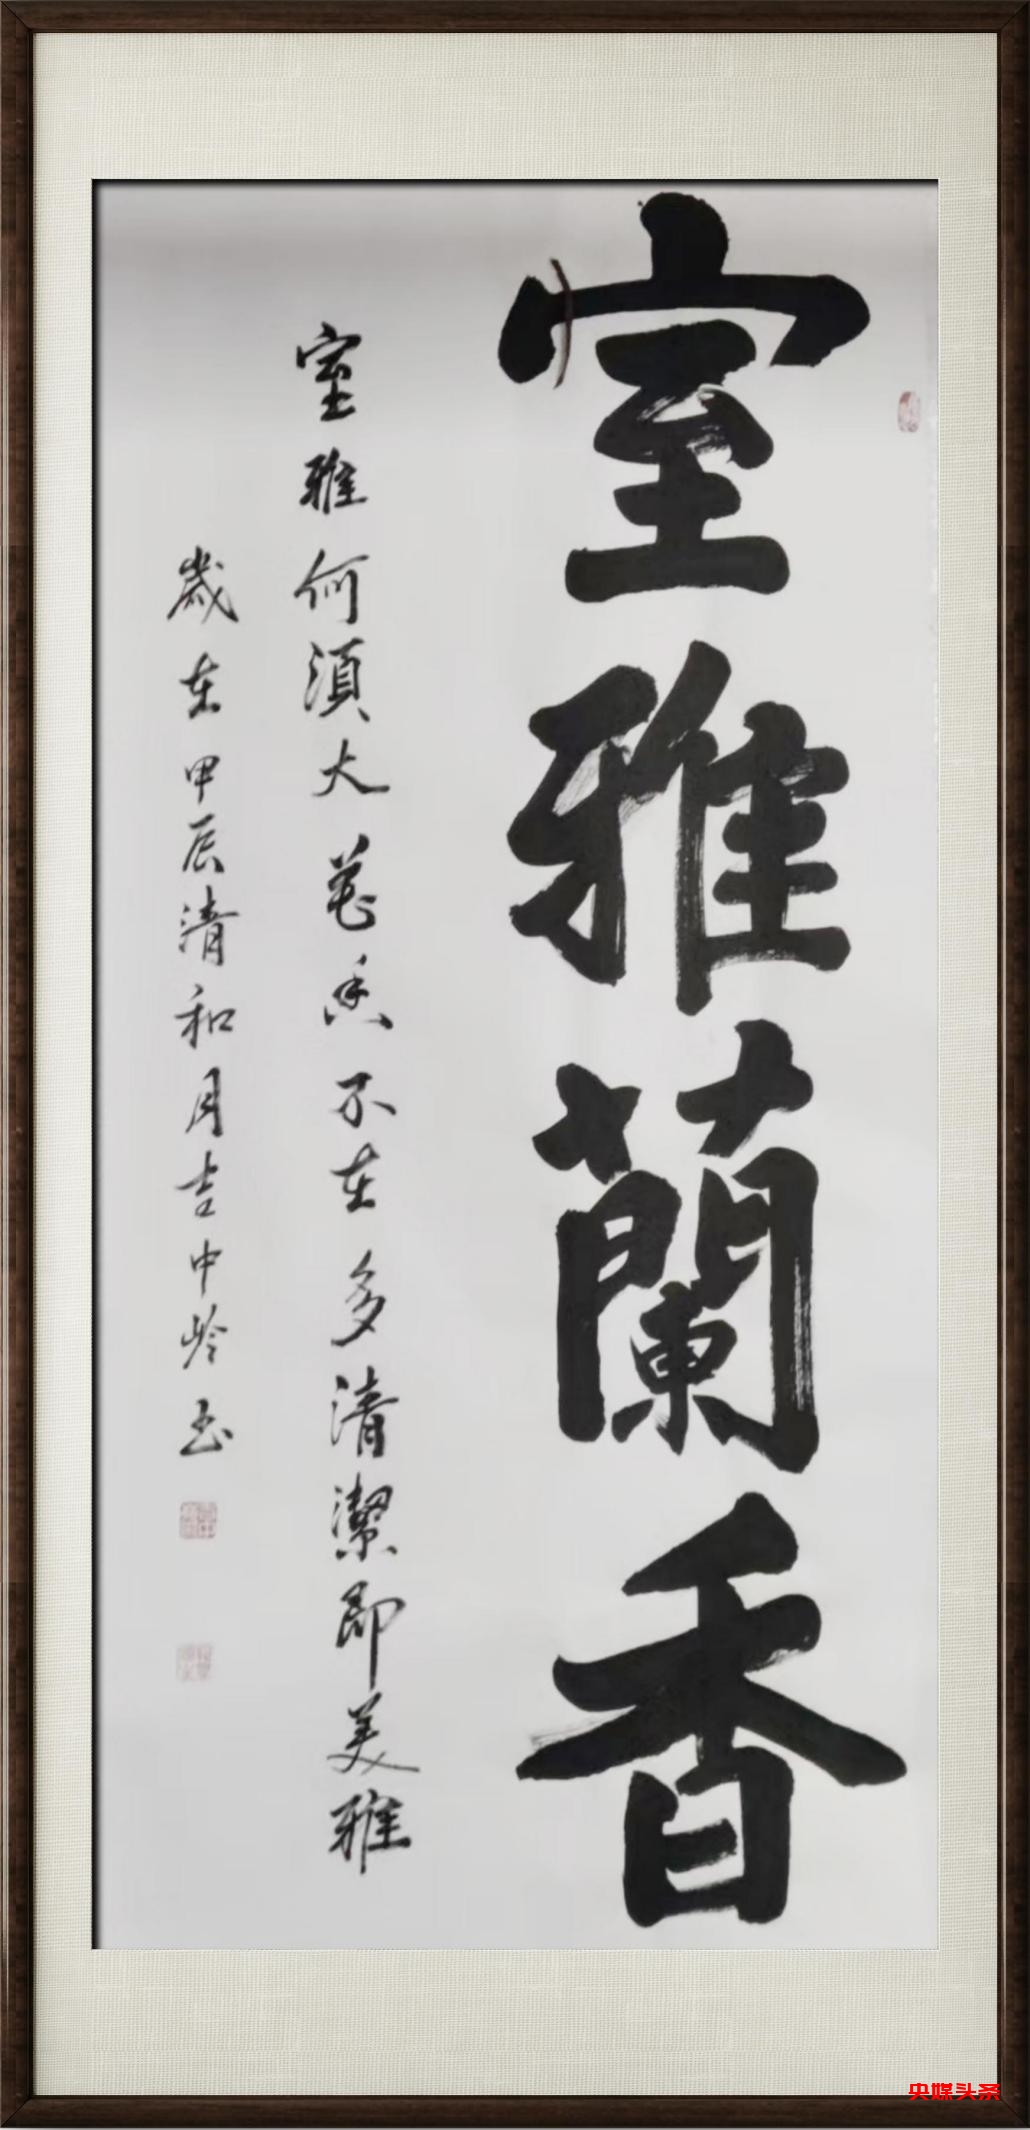 室雅蘭香
室雅何須大花香不在多清潔即美雅
歲在甲辰清和月吉中岭书
央媒头条